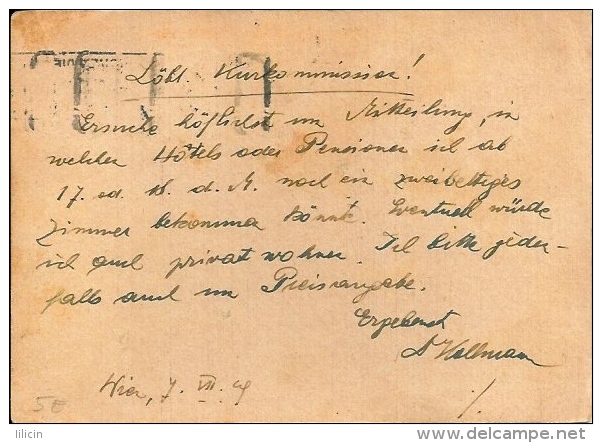 Löbl. Kurkommission!
Ersuche höflichst um Mitteilung, in
welchen Hôtels oder Pensionen ich ab
17. od. 18. d. M. noch ein zweibettiges
Zimmer bekommen könnte. Eventuell würde
ich auch privat wohnen. Ich bitte jeden-
falls auch um Preisangabe.
Ergebenst
Dr Hollmann
Wien, 7. VII.
5E
lilicin
delcampe.net